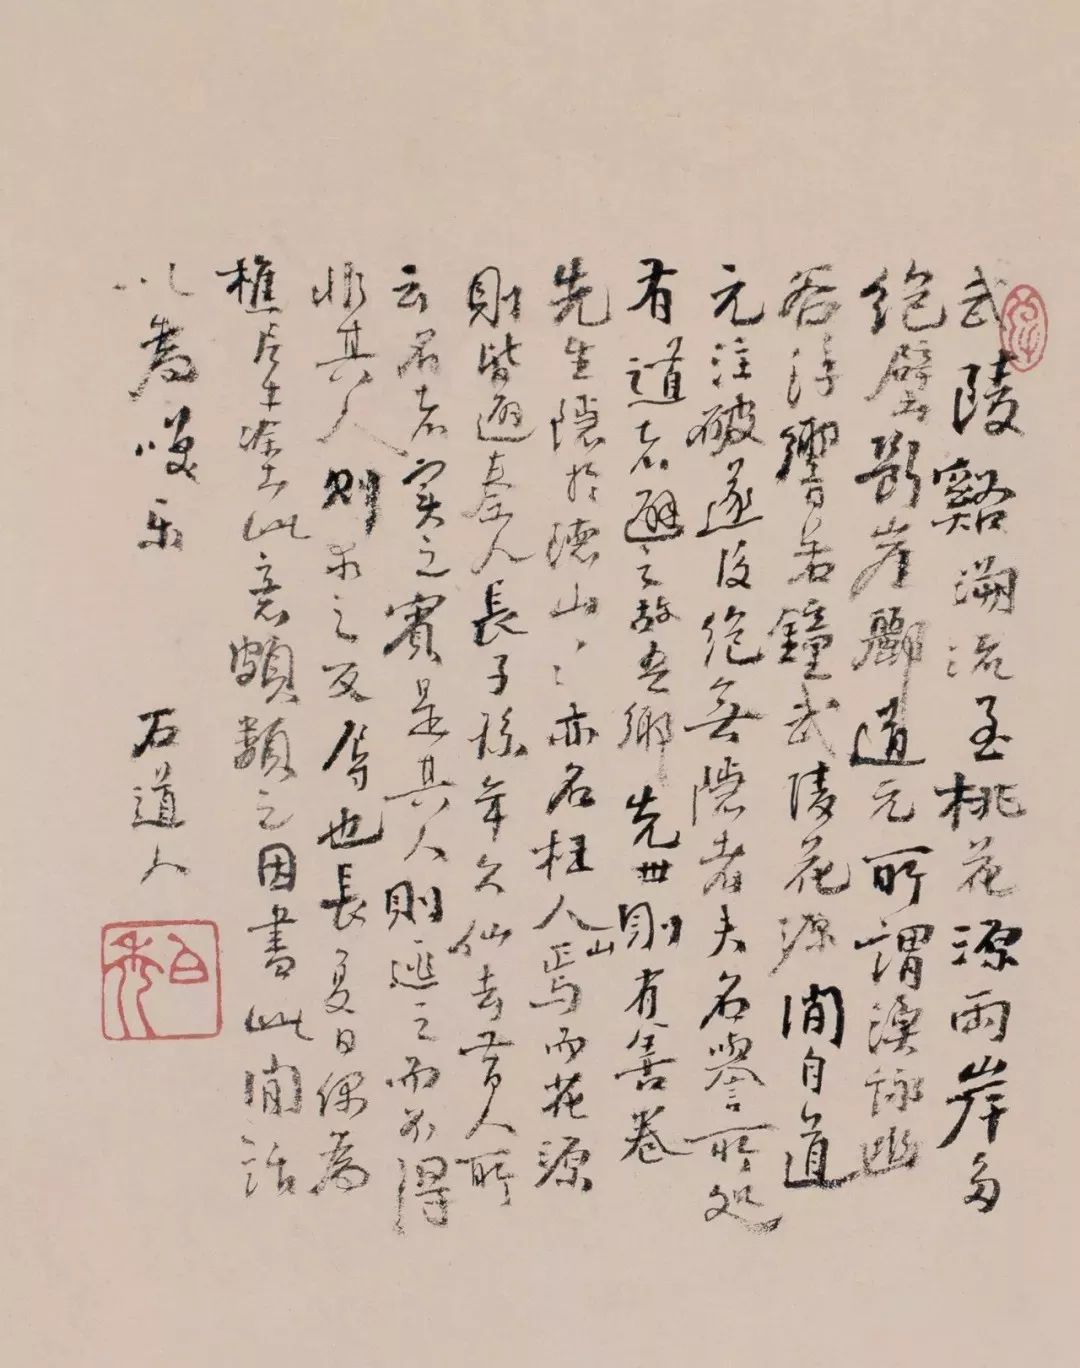 武陵谿溯流至桃花源兩岸多
絶壁斷岸酈道元所謂漁詠幽
谷浮響若鐘武陵花源間自道
元注破遂後絶無隱者夫名譽所処
有道者避之故吾鄉先世則有善卷
先生隱於德山山亦名枉人山焉而花源
則皆避秦人長子孫年久仙去昔人所
云名者实之賓是其人則逃之而不得
非其人則求之反辱也長夏日偶為
樵居士塗此意頗類之因書此閒話
以為嘆樂
石道人
白禿